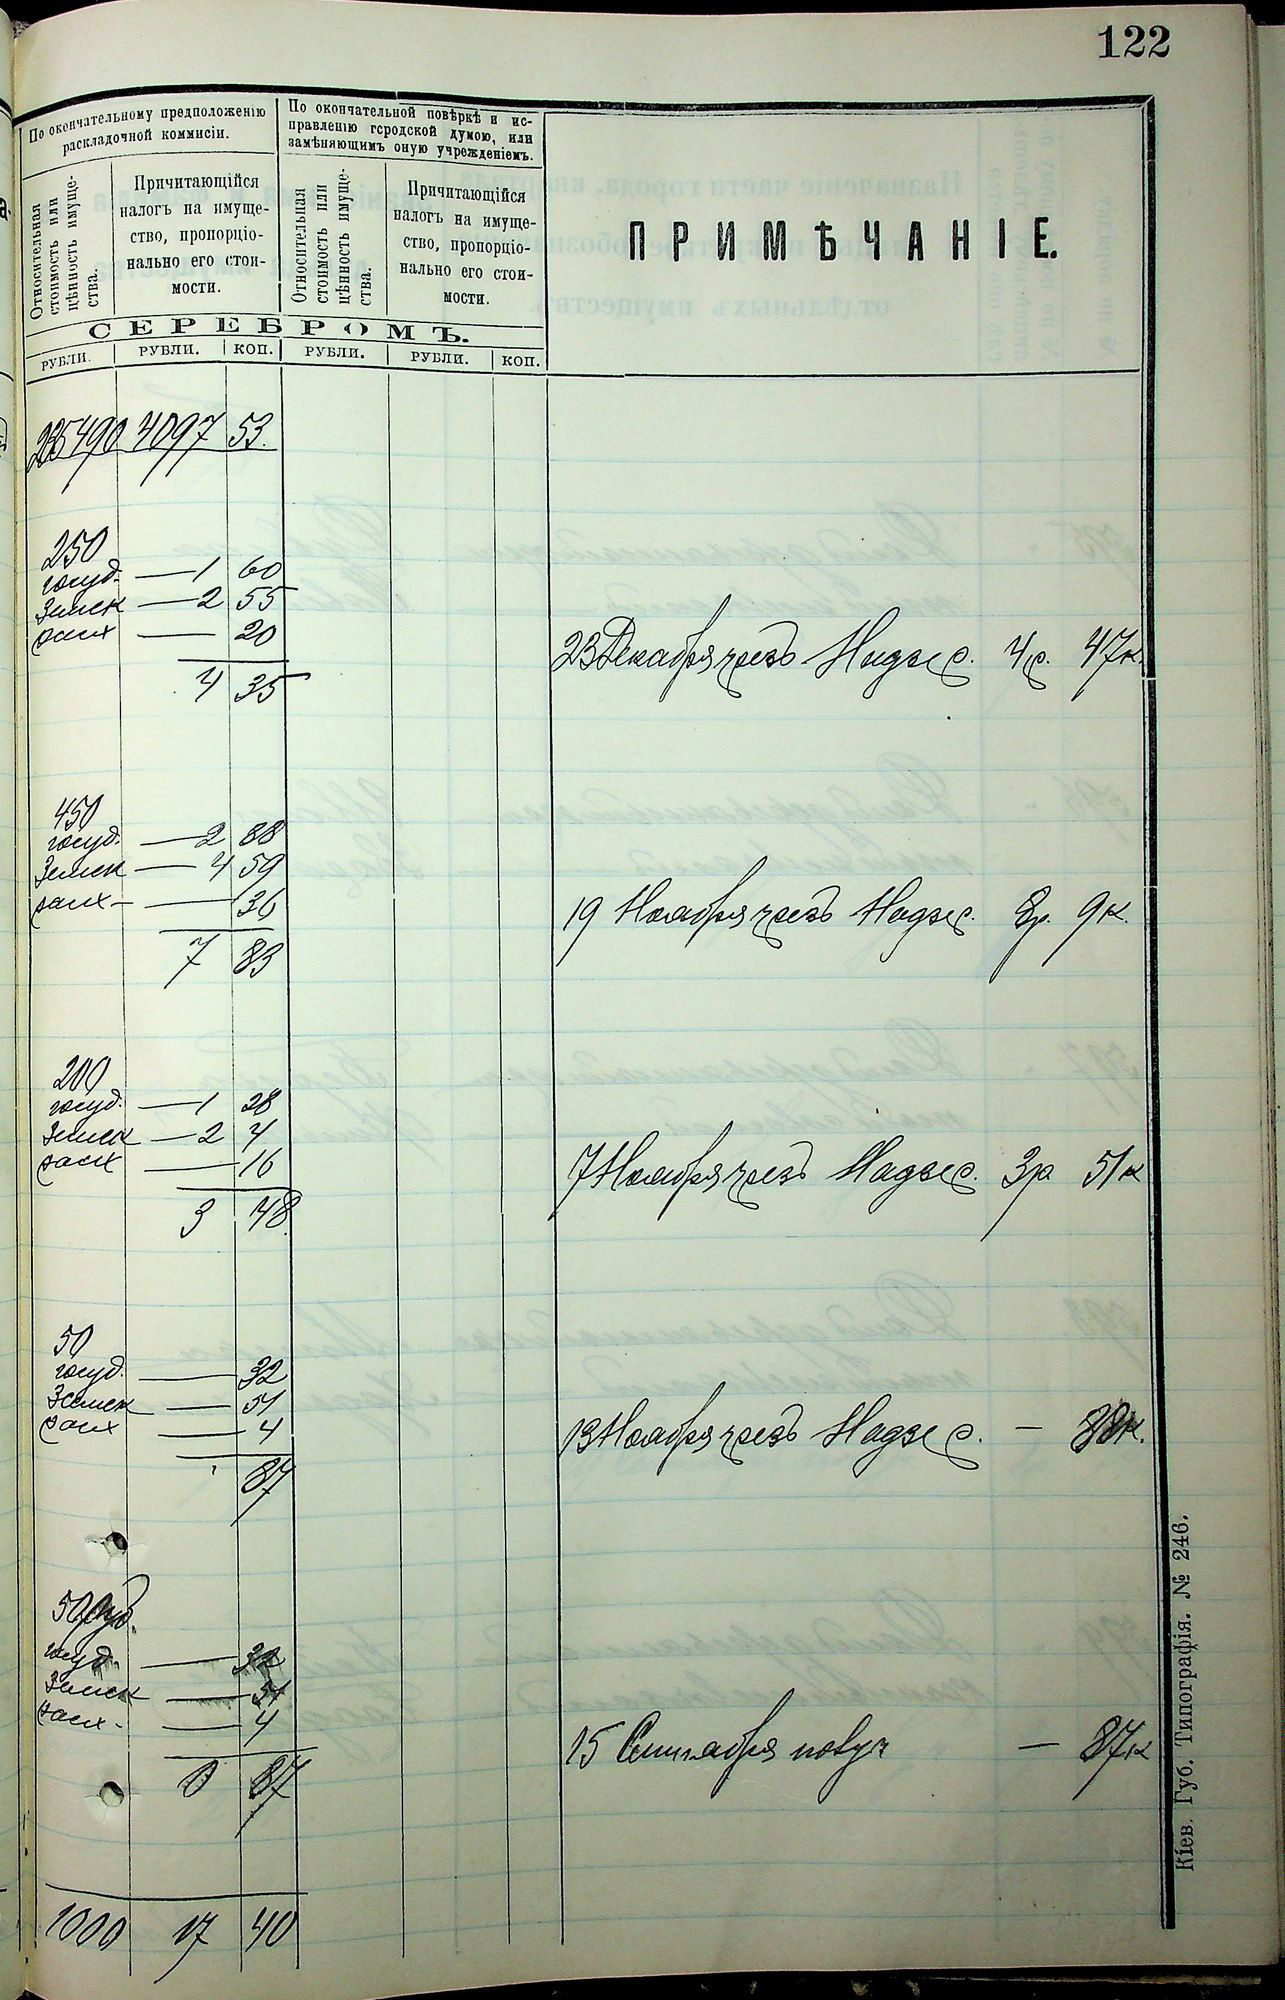 122
По окончательному предположенію
раскладочной коммисіи.
По окончательной повѣркѣ и ис-
правленію городской думою, или
замѣняющимъ оную учрежденіемъ.
Относительная
стоимость или
цѣнность имуще-
ства.
Причитающійся
налогъ на имуще-
ство, пропорціо-
нально его стои-
мости.
Относительная
стоимость или
цѣнность имуще-
ства.
Причитающійся
налогъ на имуще-
ство, пропорціо-
нально его стои-
мости.
ПРИМѢЧАНІЕ.
СЕРЕБРОМЪ.
РУБЛИ. РУБЛИ. КОП. РУБЛИ. РУБЛИ. КОП.
235490 4097 53.
250
госуд. — 1 60
Земск — 2 55
— 20
4 35
23 Декабря чрезъ 4р. 47к.
450
госуд. — 2 88
Земск — 4 59
— 36
7 83
19 Ноября чрезъ 8р. 9к.
200
госуд. — 1 28
Земск — 2 4
— 16
3 48.
7 Ноября чрезъ 3р 51к
50
госуд. — 32
Земск — 51
— 4
87
13 Ноября чрезъ — 88к.
50 руб.
госуд. — 32
Земск — 51
— 4
0 87
15 Сентября — 87к
1000 17 40
Кіев. Губ. Типографія. № 246.